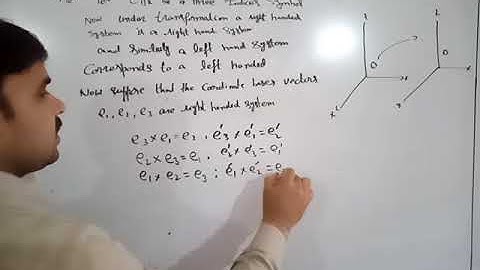 is a three Indices Symbol
Now under transformation a right handed
System is a right hand System
and Similarly a left hand System
Corresponds to a left handed
Now suppose that the Cordinate bases vectors
e₁, e₂, e₃ are right handed system
e₃ × e₁ = e₂ , e₃′ × e₁′ = e₂′
e₂ × e₃ = e₁ , e₂′ × e₃′ = e₁′
e₁ × e₂ = e₃ ; e₁′ × e₂′ = e
O
O